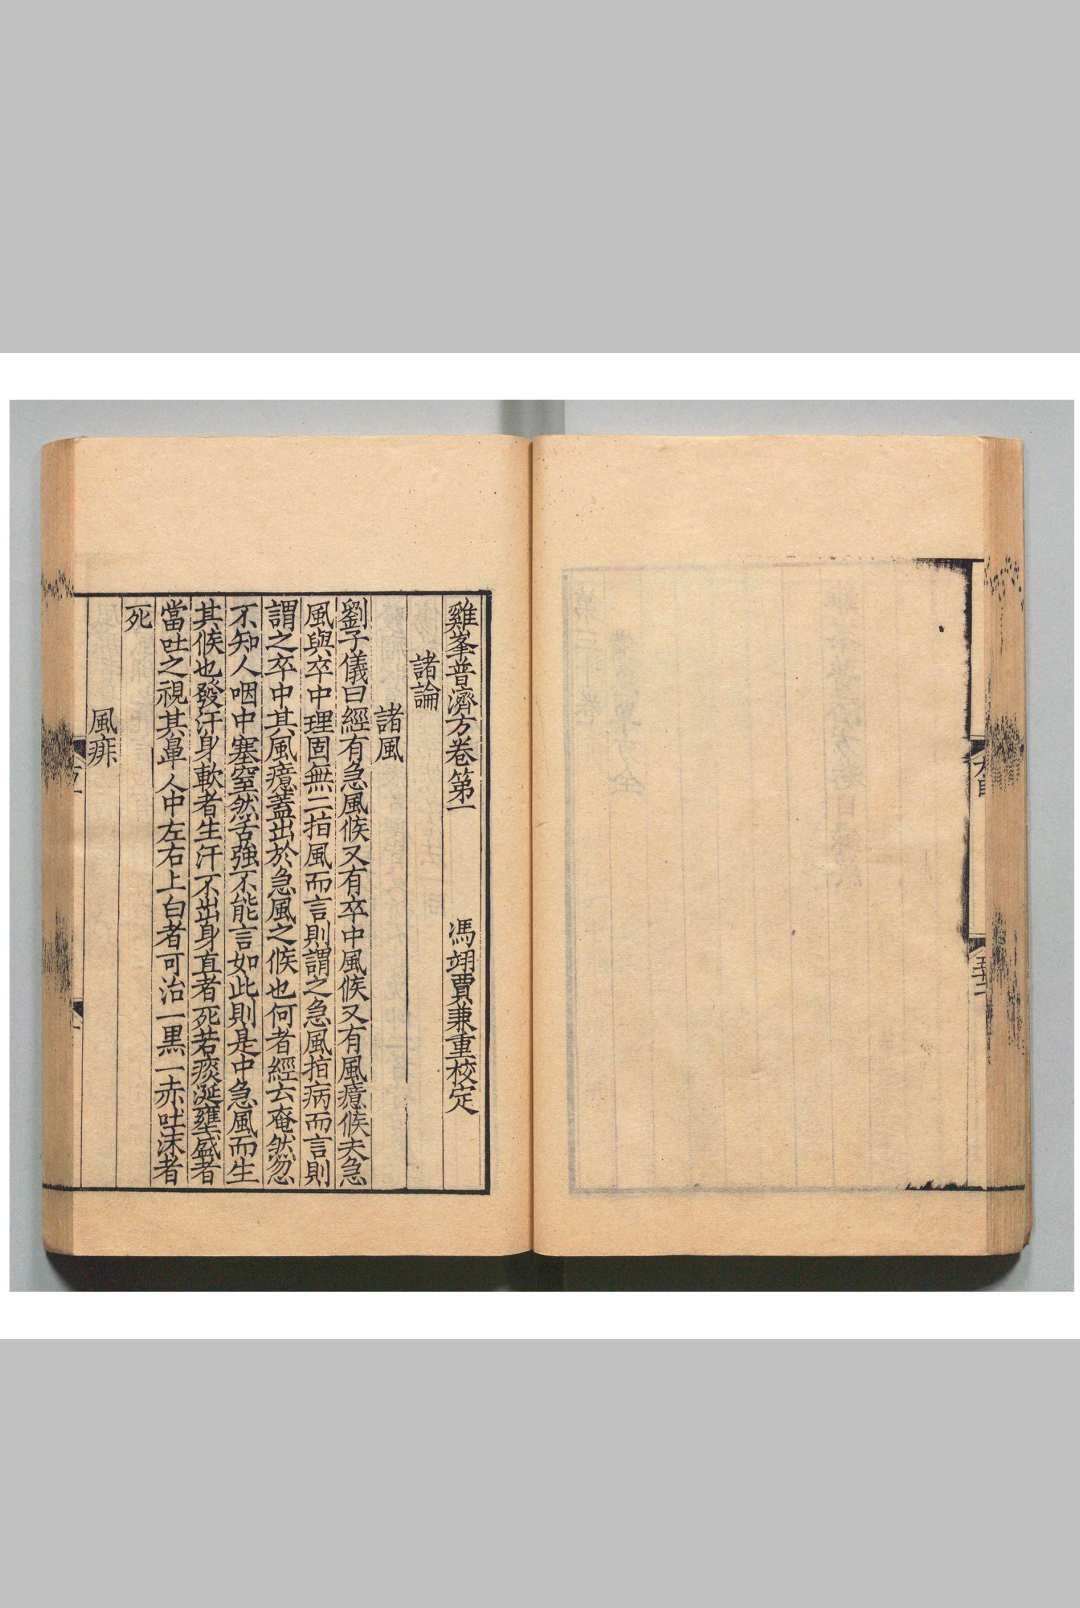 雞峯普濟方卷第一　馮翊賈兼重校定
諸論
諸風
劉子儀曰經有急風候又有卒中風候又有風癔候夫急
風與卒中理固無二指風而言則謂之急風指病而言則
謂之卒中其風癔蓋出於急風之候也何者經云奄然忽
不知人咽中塞窒然舌強不能言如此則是中急風而生
其候也發汗身軟者生汗不出身直者死若痰涎壅盛者
當吐之視其鼻人中左右上白者可治一黒一赤吐沫者
死
風痱